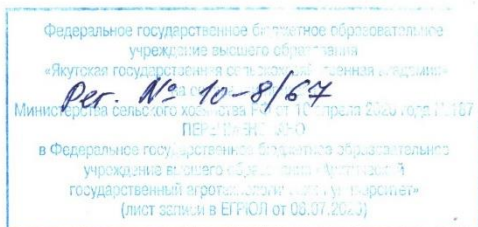 Федеральное государственное бюджетное образовательное
учреждение высшего образования
«Якутская государственная сельскохозяйственная академия»
Рег. № 10-8/67
Министерства сельского хозяйства РФ от апреля 2020 года
ПЕРЕИМЕНОВАНО
в Федеральное государственное бюджетное образовательное
учреждение высшего образования «Арктический
государственный агротехнологический университет»
(лист записи в ЕГРЮЛ от 06.07.2020)